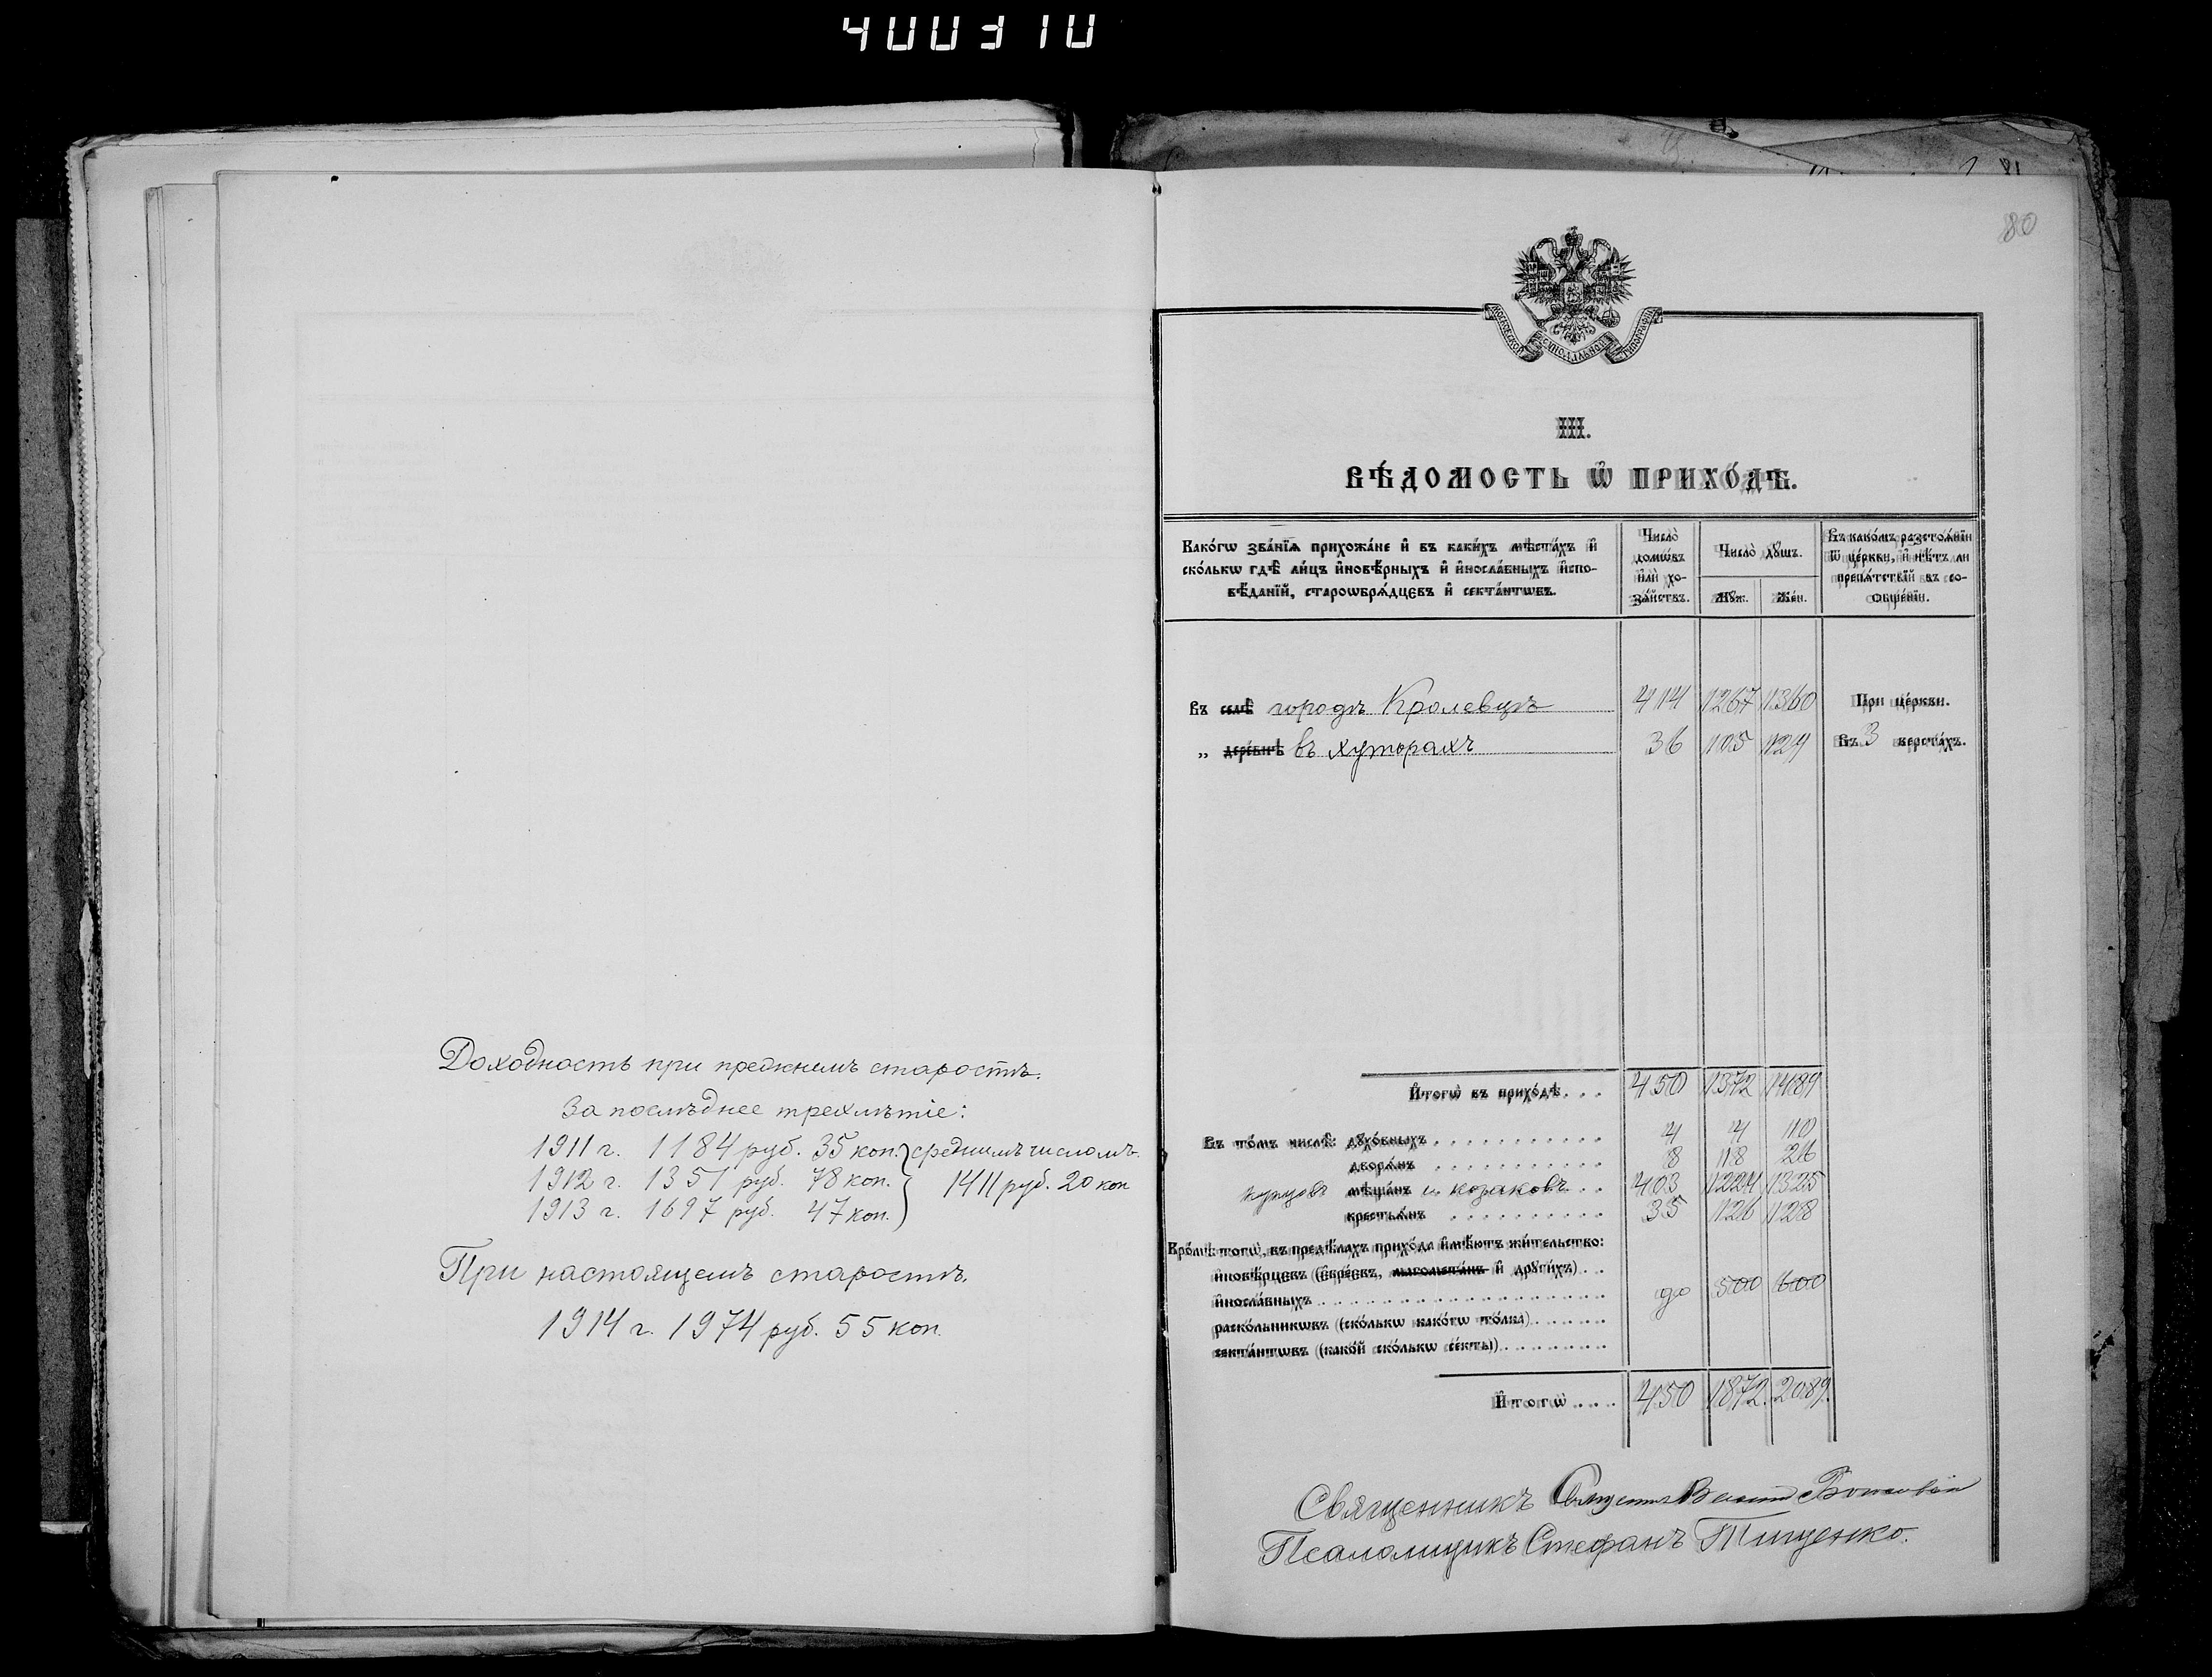 400310
Доходность при прежнемъ старостѣ.
За послѣднее трехлѣтіе:
1911 г. 1184 руб. 35 коп. } среднимъ числомъ
1912 г. 1351 руб. 78 коп. } 1411 руб. 20 коп
1913 г. 1697 руб. 47 коп. }
При настоящемъ старостѣ.
1914 г. 1974 руб. 55 коп.
80
МОСКОВСКОЙ СѴНОДАЛЬНОЙ ТИПОГРАФІИ
III.
ВѢ́ДОМОСТЬ Ѡ҆ ПРИХО́ДѢ.
Како́гѡ зва́нїѧ прихожа́не и҆ въ каки́хъ мѣста́хъ и҆
ско́лькѡ гдѣ̀ ли́цъ и҆новѣ́рныхъ и҆ и҆носла́вныхъ и҆спо-
вѣ́данїй, старѡѡбрѧ́дцєвъ и҆ секта́нтѡвъ.
Число̀
домѡ́въ
и҆лѝ хо-
зѧ́йствъ.
Число̀ дꙋ́шъ.
Мꙋ́ж.
Же́н.
Въ како́мъ разстоѧ́нїи
ѿ це́ркви, и҆ нѣ́тъ ли
препѧ́тствїй въ со-
ѡбще́нїи.
Въ селѣ̀ городѣ Кролевцѣ 414 1267 1360 При це́ркви.
„ дере́внѣ въ хуторахъ 36 105 129 Въ 3 верста́хъ.
И҆тогѡ̀ въ прихо́дѣ. . . 450 1372 1489
Въ то́мъ числѣ̀: дꙋхо́вныхъ . . . . . . . . . . . 4 4 10
дворѧ́нъ . . . . . . . . . . . 8 18 26
купцовъ мѣща́нъ и козаковъ . . 403 1224 1325
крестьѧ́нъ . . . . . . . . . . 35 126 128
Кро́мѣ тогѡ̀, въ предѣ́лахъ прихо́да и҆мѣ́ютъ жи́тельство:
и҆новѣ́рцєвъ (є҆вре́євъ, магомета́нъ и҆ дрꙋги́хъ) . . до 500 600
и҆носла́вныхъ . . . . . . . . . . . . . . . . . . . .
раско́льникѡвъ (ско́лькѡ како́гѡ то́лка) . . . . . . .
секта́нтѡвъ (како́й ско́лькѡ се́кты) . . . . . . . . .
И҆тогѡ̀ . . . . 450 1872. 2089.
Священникъ Священникъ
Псаломщикъ Стефанъ Тищенко.